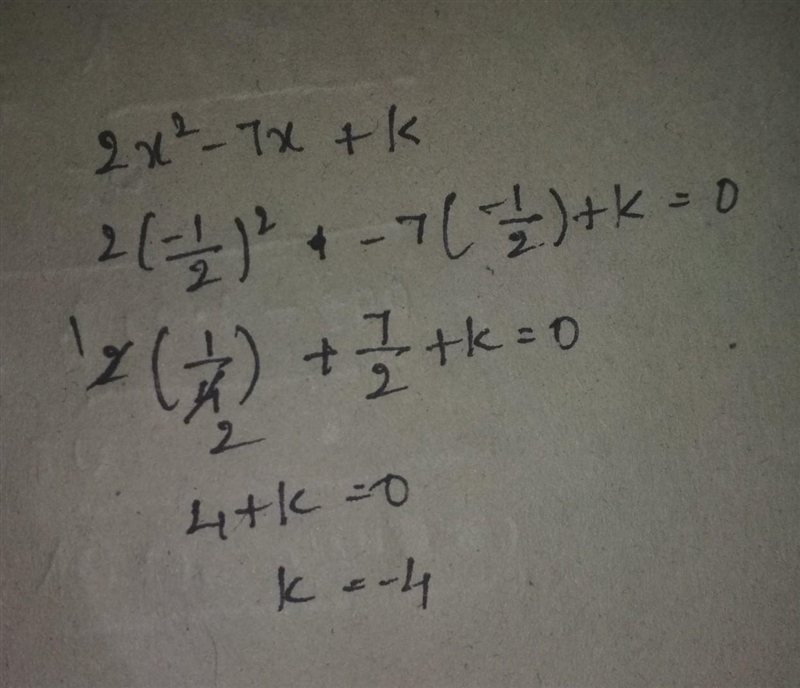 2x² - 7x + k
2(-1/2)² - 7(-1/2) + k = 0
1 2(1/4) + 7/2 + k = 0
2
4 + k = 0
k = -4